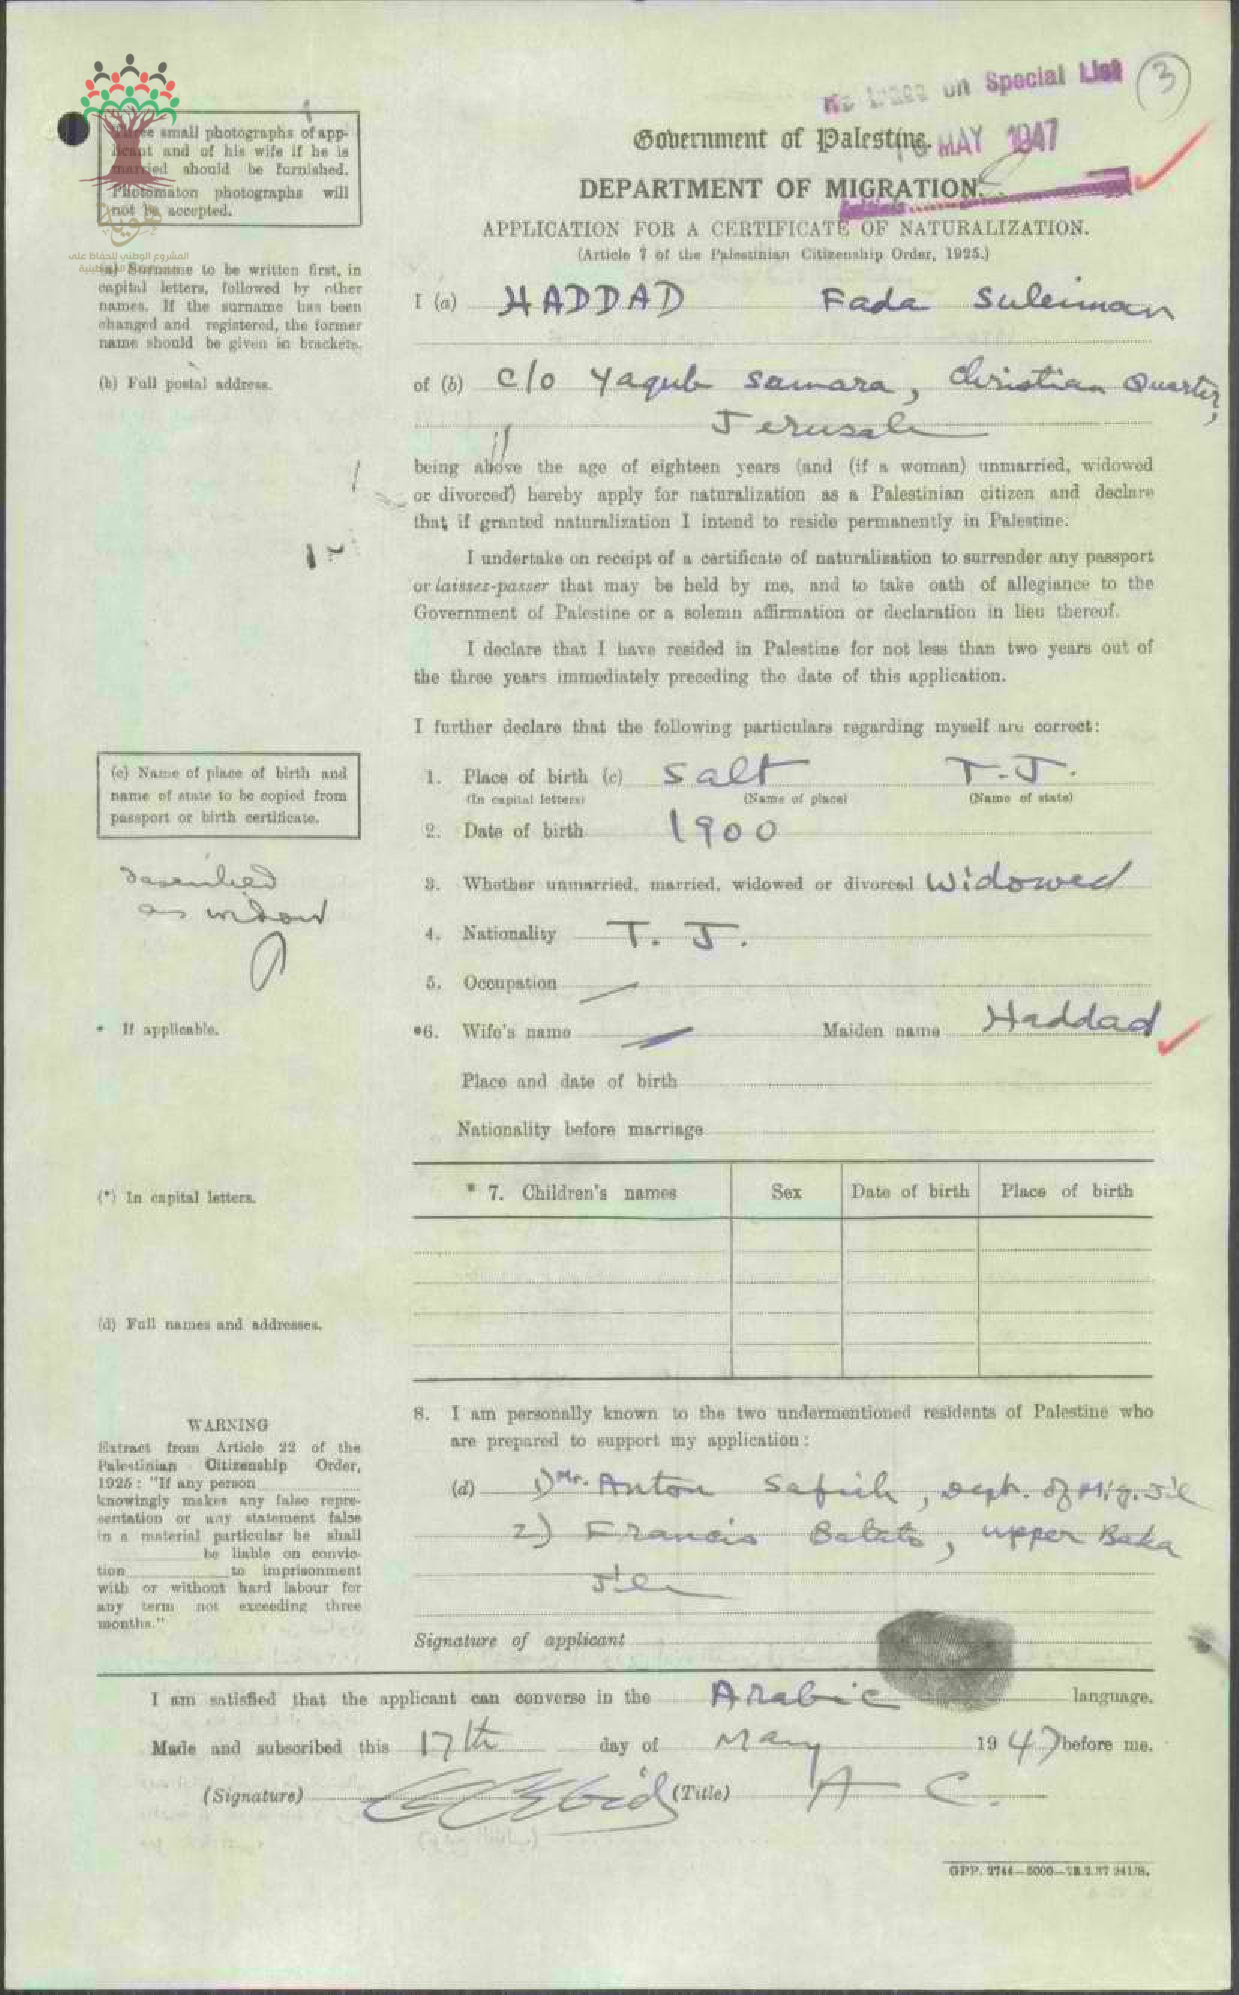 No Trace on Special List
3
Government of Palestine.
MAY 1947
DEPARTMENT OF MIGRATION.
APPLICATION FOR A CERTIFICATE OF NATURALIZATION.
(Article 7 of the Palestinian Citizenship Order, 1925.)
small photographs of app-
licant and of his wife if he is
married should be furnished.
Photomaton photographs will
not be accepted.
المشروع الوطني للحفاظ على
(a) Surname to be written first, in
capital letters, followed by other
names. If the surname has been
changed and registered, the former
name should be given in brackets.
I (a) HADDAD Fada Suleiman
(b) Full postal address.
of (b) c/o Yaqub Samara, Christian Quarter,
Jerusale
being above the age of eighteen years (and (if a woman) unmarried, widowed
or divorced) hereby apply for naturalization as a Palestinian citizen and declare
that, if granted naturalization I intend to reside permanently in Palestine.
I undertake on receipt of a certificate of naturalization to surrender any passport
or laissez-passer that may be held by me, and to take oath of allegiance to the
Government of Palestine or a solemn affirmation or declaration in lieu thereof.
I declare that I have resided in Palestine for not less than two years out of
the three years immediately preceding the date of this application.
I further declare that the following particulars regarding myself are correct:
(c) Name of place of birth and
name of state to be copied from
passport or birth certificate.
1. Place of birth (c) Salt T.J.
(In capital letters) (Name of place) (Name of state)
2. Date of birth 1900
described
as widow
3. Whether unmarried, married, widowed or divorced Widowed
4. Nationality T. J.
5. Occupation
* If applicable.
*6. Wife's name Maiden name Haddad
Place and date of birth
Nationality before marriage
(*) In capital letters.
* 7. Children's names Sex Date of birth Place of birth
(d) Full names and addresses.
8. I am personally known to the two undermentioned residents of Palestine who
are prepared to support my application:
(d) 1) Mr. Anton Safieh, Dept. of Mig. J'le
2) Francis Balato, upper Baka
J'le
WARNING
Extract from Article 22 of the
Palestinian Citizenship Order,
1925: "If any person
knowingly makes any false repre-
sentation or any statement false
in a material particular he shall
be liable on convic-
tion to imprisonment
with or without hard labour for
any term not exceeding three
months."
Signature of applicant
I am satisfied that the applicant can converse in the Arabic language.
Made and subscribed this 17th day of May 1947 before me.
(Signature) (Title) A C.
GPP. 2744—5000—18.2.37 341/S.